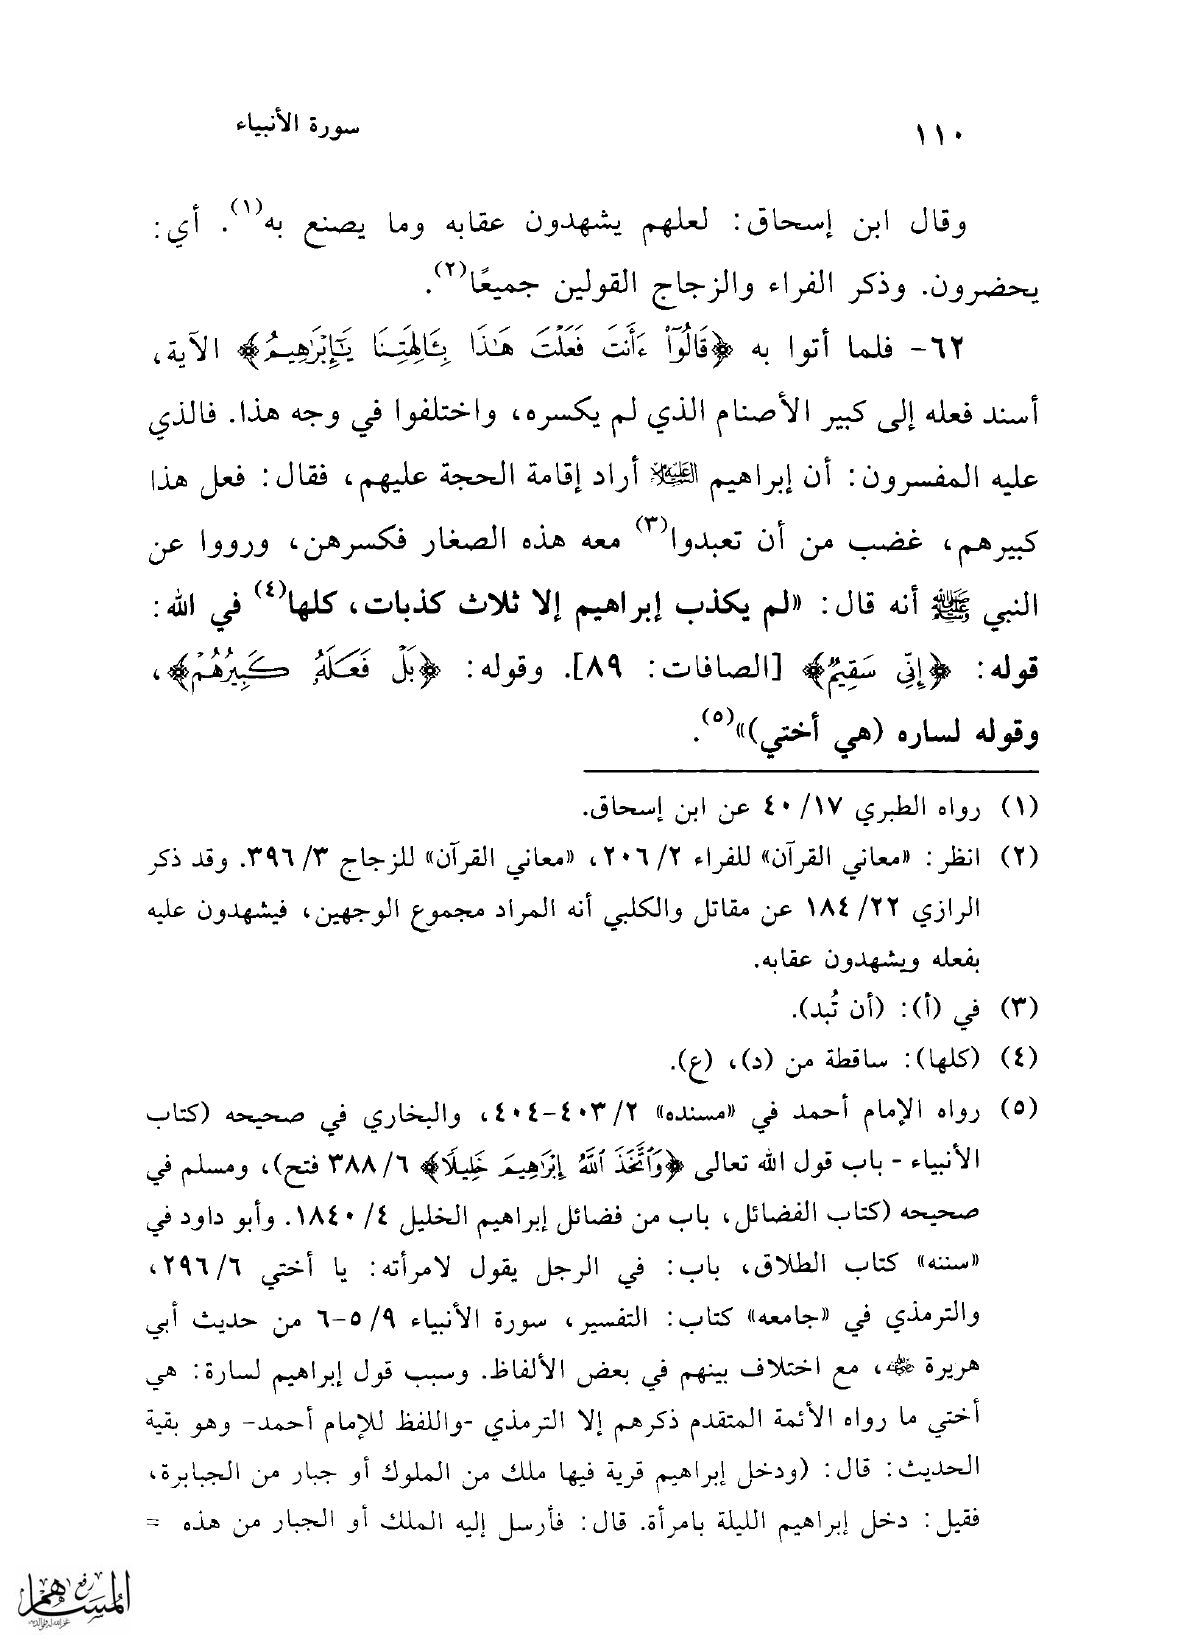 ١١٠ سورة الأنبياء
وقال ابن إسحاق: لعلهم يشهدون عقابه وما يصنع به(١). أي:
يحضرون. وذكر الفراء والزجاج القولين جميعًا(٢).
٦٢- فلما أتوا به ﴿قَالُوٓا۟ ءَأَنتَ فَعَلْتَ هَٰذَا بِـَٔالِهَتِنَا يَٰٓإِبْرَٰهِيمُ﴾ الآية،
أسند فعله إلى كبير الأصنام الذي لم يكسره، واختلفوا في وجه هذا. فالذي
عليه المفسرون: أن إبراهيم عليه السلام أراد إقامة الحجة عليهم، فقال: فعل هذا
كبيرهم، غضب من أن تعبدوا(٣) معه هذه الصغار فكسرهن، ورووا عن
النبي ﷺ أنه قال: «لم يكذب إبراهيم إلا ثلاث كذبات، كلها(٤) في الله:
قوله: ﴿إِنِّي سَقِيمٌ﴾ [الصافات: ٨٩]. وقوله: ﴿بَلْ فَعَلَهُۥ كَبِيرُهُمْ﴾،
وقوله لساره (هي أختي)»(٥).
(١) رواه الطبري ١٧/ ٤٠ عن ابن إسحاق.
(٢) انظر: «معاني القرآن» للفراء ٢/ ٢٠٦، «معاني القرآن» للزجاج ٣/ ٣٩٦. وقد ذكر
الرازي ٢٢/ ١٨٤ عن مقاتل والكلبي أنه المراد مجموع الوجهين، فيشهدون عليه
بفعله ويشهدون عقابه.
(٣) في (أ): (أن تُبد).
(٤) (كلها): ساقطة من (د)، (ع).
(٥) رواه الإمام أحمد في «مسنده» ٢/ ٤٠٣-٤٠٤، والبخاري في صحيحه (كتاب
الأنبياء - باب قول الله تعالى ﴿وَٱتَّخَذَ ٱللَّهُ إِبْرَٰهِيمَ خَلِيلًا﴾ ٦/ ٣٨٨ فتح)، ومسلم في
صحيحه (كتاب الفضائل، باب من فضائل إبراهيم الخليل ٤/ ١٨٤٠. وأبو داود في
«سننه» كتاب الطلاق، باب: في الرجل يقول لامرأته: يا أختي ٦/ ٢٩٦،
والترمذي في «جامعه» كتاب: التفسير، سورة الأنبياء ٩/ ٥-٦ من حديث أبي
هريرة رضي الله عنه، مع اختلاف بينهم في بعض الألفاظ. وسبب قول إبراهيم لسارة: هي
أختي ما رواه الأئمة المتقدم ذكرهم إلا الترمذي -واللفظ للإمام أحمد- وهو بقية
الحديث: قال: (ودخل إبراهيم قرية فيها ملك من الملوك أو جبار من الجبابرة،
فقيل: دخل إبراهيم الليلة بامرأة. قال: فأرسل إليه الملك أو الجبار من هذه =
رفع
المساهم